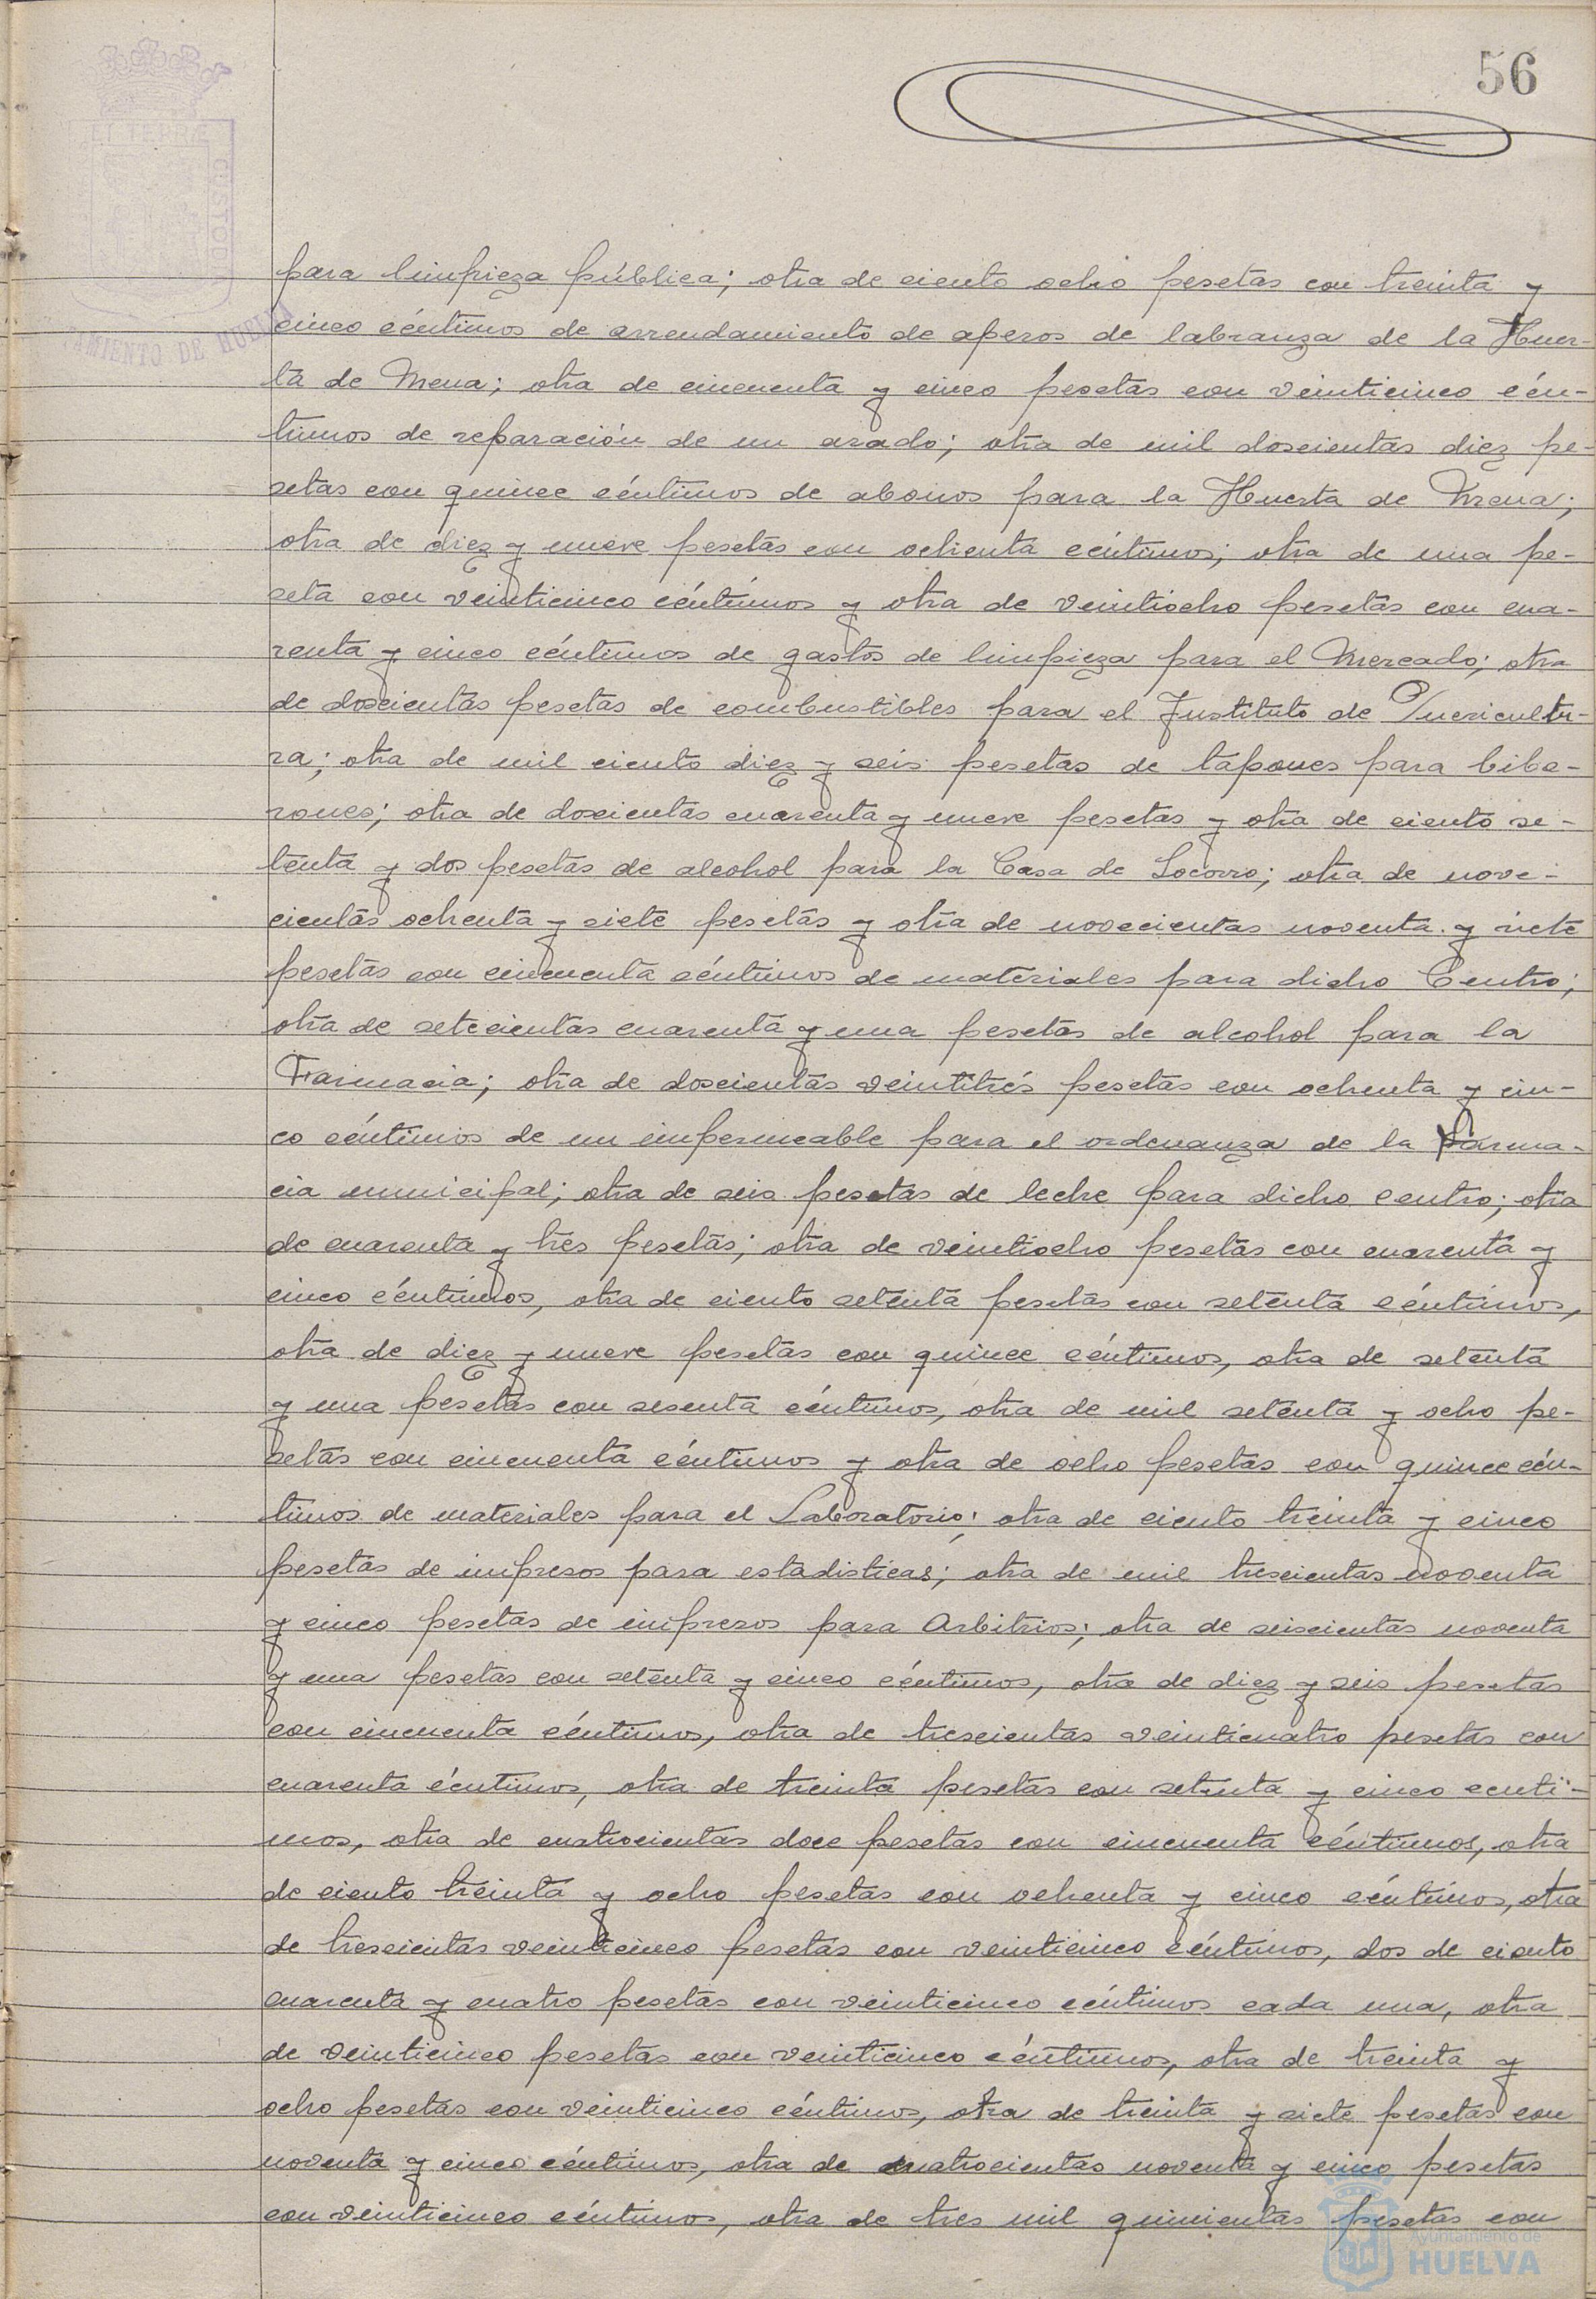 56
ET TERRÆ
CUSTODIA
AYUNTAMIENTO DE HUELVA
para limpieza pública; otra de ciento ocho pesetas con treinta y
cinco céntimos de arrendamiento de aperos de labranza de la Huer-
ta de Mena; otra de cincuenta y cinco pesetas con veinticinco cén-
timos de reparación de un arado; otra de mil doscientas diez pe-
setas con quince céntimos de abonos para la Huerta de Mena;
otra de diez y nueve pesetas con ochenta céntimos; otra de una pe-
seta con veinticinco céntimos y otra de veintiocho pesetas con cua-
renta y cinco céntimos de gastos de limpieza para el Mercado; otra
de doscientas pesetas de combustibles para el Instituto de Puericultu-
ra; otra de mil ciento diez y seis pesetas de tapones para bibe-
rones; otra de doscientas cuarenta y nueve pesetas y otra de ciento se-
tenta y dos pesetas de alcohol para la Casa de Socorro; otra de nove-
cientas ochenta y siete pesetas y otra de novecientas noventa y siete
pesetas con cincuenta céntimos de materiales para dicho Centro;
otra de setecientas cuarenta y una pesetas de alcohol para la
Farmacia; otra de doscientas veintitrés pesetas con ochenta y cin-
co céntimos de un impermeable para el ordenanza de la Farma-
cia municipal; otra de seis pesetas de leche para dicho centro; otra
de cuarenta y tres pesetas; otra de veintiocho pesetas con cuarenta y
cinco céntimos, otra de ciento setenta pesetas con setenta céntimos,
otra de diez y nueve pesetas con quince céntimos, otra de setenta
y una pesetas con sesenta céntimos, otra de mil setenta y ocho pe-
setas con cincuenta céntimos y otra de ocho pesetas con quince cén-
timos de materiales para el Laboratorio; otra de ciento treinta y cinco
pesetas de impresos para estadísticas; otra de mil trescientas noventa
y cinco pesetas de impresos para Arbitrios; otra de seiscientas noventa
y una pesetas con setenta y cinco céntimos, otra de diez y seis pesetas
con cincuenta céntimos, otra de trescientas veinticuatro pesetas con
cuarenta céntimos, otra de treinta pesetas con setenta y cinco centi-
mos, otra de cuatrocientas doce pesetas con cincuenta céntimos, otra
de ciento treinta y ocho pesetas con ochenta y cinco céntimos, otra
de trescientas veinticinco pesetas con veinticinco céntimos, dos de ciento
cuarenta y cuatro pesetas con veinticinco céntimos cada una, otra
de veinticinco pesetas con veinticinco céntimos, otra de treinta y
ocho pesetas con veinticinco céntimos, otra de treinta y siete pesetas con
noventa y cinco céntimos, otra de cuatrocientas noventa y cinco pesetas
con veinticinco céntimos, otra de tres mil quinientas pesetas con
Ayuntamiento de
HUELVA